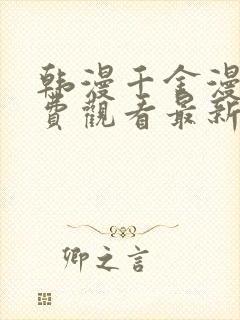 韩漫千金漫
費觀看最新
卿之言